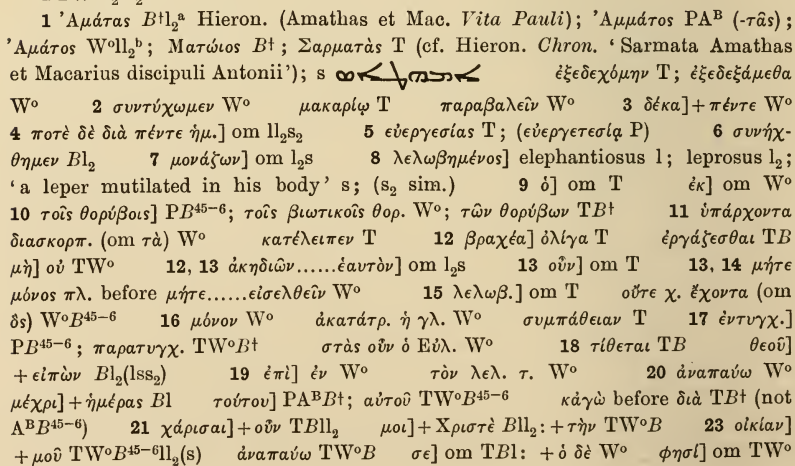 1 Ἀμάτας B†l₂ᵃ Hieron. (Amathas et Mac. Vita Pauli); Ἀμμάτος PAᴮ (-τᾶς);
Ἀμάτος Wᵒll₂ᵇ; Ματώιος B†; Σαρματᾶς T (cf. Hieron. Chron. ‘Sarmata Amathas
et Macarius discipuli Antonii’); s ἐξεδεχόμην T; ἐξεδεξάμεθα
Wᵒ 2 συντύχωμεν Wᵒ μακαρίῳ T παραβαλεῖν Wᵒ 3 δέκα]+πέντε Wᵒ
4 ποτὲ δὲ διὰ πέντε ἡμ.] om ll₂s₂ 5 εὐεργεσίας T; (εὐεργετεσίᾳ P) 6 συνήχ-
θημεν Bl₂ 7 μονάζων] om l₂s 8 λελωβημένος] elephantiosus l; leprosus l₂;
‘a leper mutilated in his body’ s; (s₂ sim.) 9 ὁ] om T ἐκ] om Wᵒ
10 τοῖς θορύβοις] PB⁴⁵⁻⁶; τοῖς βιωτικοῖς θορ. Wᵒ; τῶν θορύβων TB† 11 ὑπάρχοντα
διασκορπ. (om τὰ) Wᵒ κατέλειπεν T 12 βραχέα] ὀλίγα T ἐργάζεσθαι TB
μὴ] οὐ TWᵒ 12, 13 ἀκηδιῶν......ἑαυτὸν] om l₂s 13 οὖν] om T 13, 14 μήτε
μόνος πλ. before μήτε......εἰσελθεῖν Wᵒ 15 λελωβ.] om T οὔτε χ. ἔχοντα (om
ὃς) WᵒB⁴⁵⁻⁶ 16 μόνον Wᵒ ἀκατάτρ. ἡ γλ. Wᵒ συμπάθειαν T 17 ἐντυγχ.]
PB⁴⁵⁻⁶; παρατυγχ. TWᵒB† στὰς οὖν ὁ Εὐλ. Wᵒ 18 τίθεται TB θεοῦ]
+εἰπὼν Bl₂(lss₂) 19 ἐπὶ] ἐν Wᵒ τὸν λελ. τ. Wᵒ 20 ἀναπαύω Wᵒ
μέχρι]+ἡμέρας Bl τούτου] PAᴮB†; αὐτοῦ TWᵒB⁴⁵⁻⁶ κἀγὼ before διὰ TB† (not
AᴮB⁴⁵⁻⁶) 21 χάρισαι]+οὖν TBll₂ μοι]+Χριστὲ Bll₂: +τὴν TWᵒB 23 οἰκίαν]
+μοῦ TWᵒB⁴⁵⁻⁶ll₂(s) ἀναπαύω TWᵒB σε] om TBl: +ὁ δὲ Wᵒ φησί] om TWᵒ